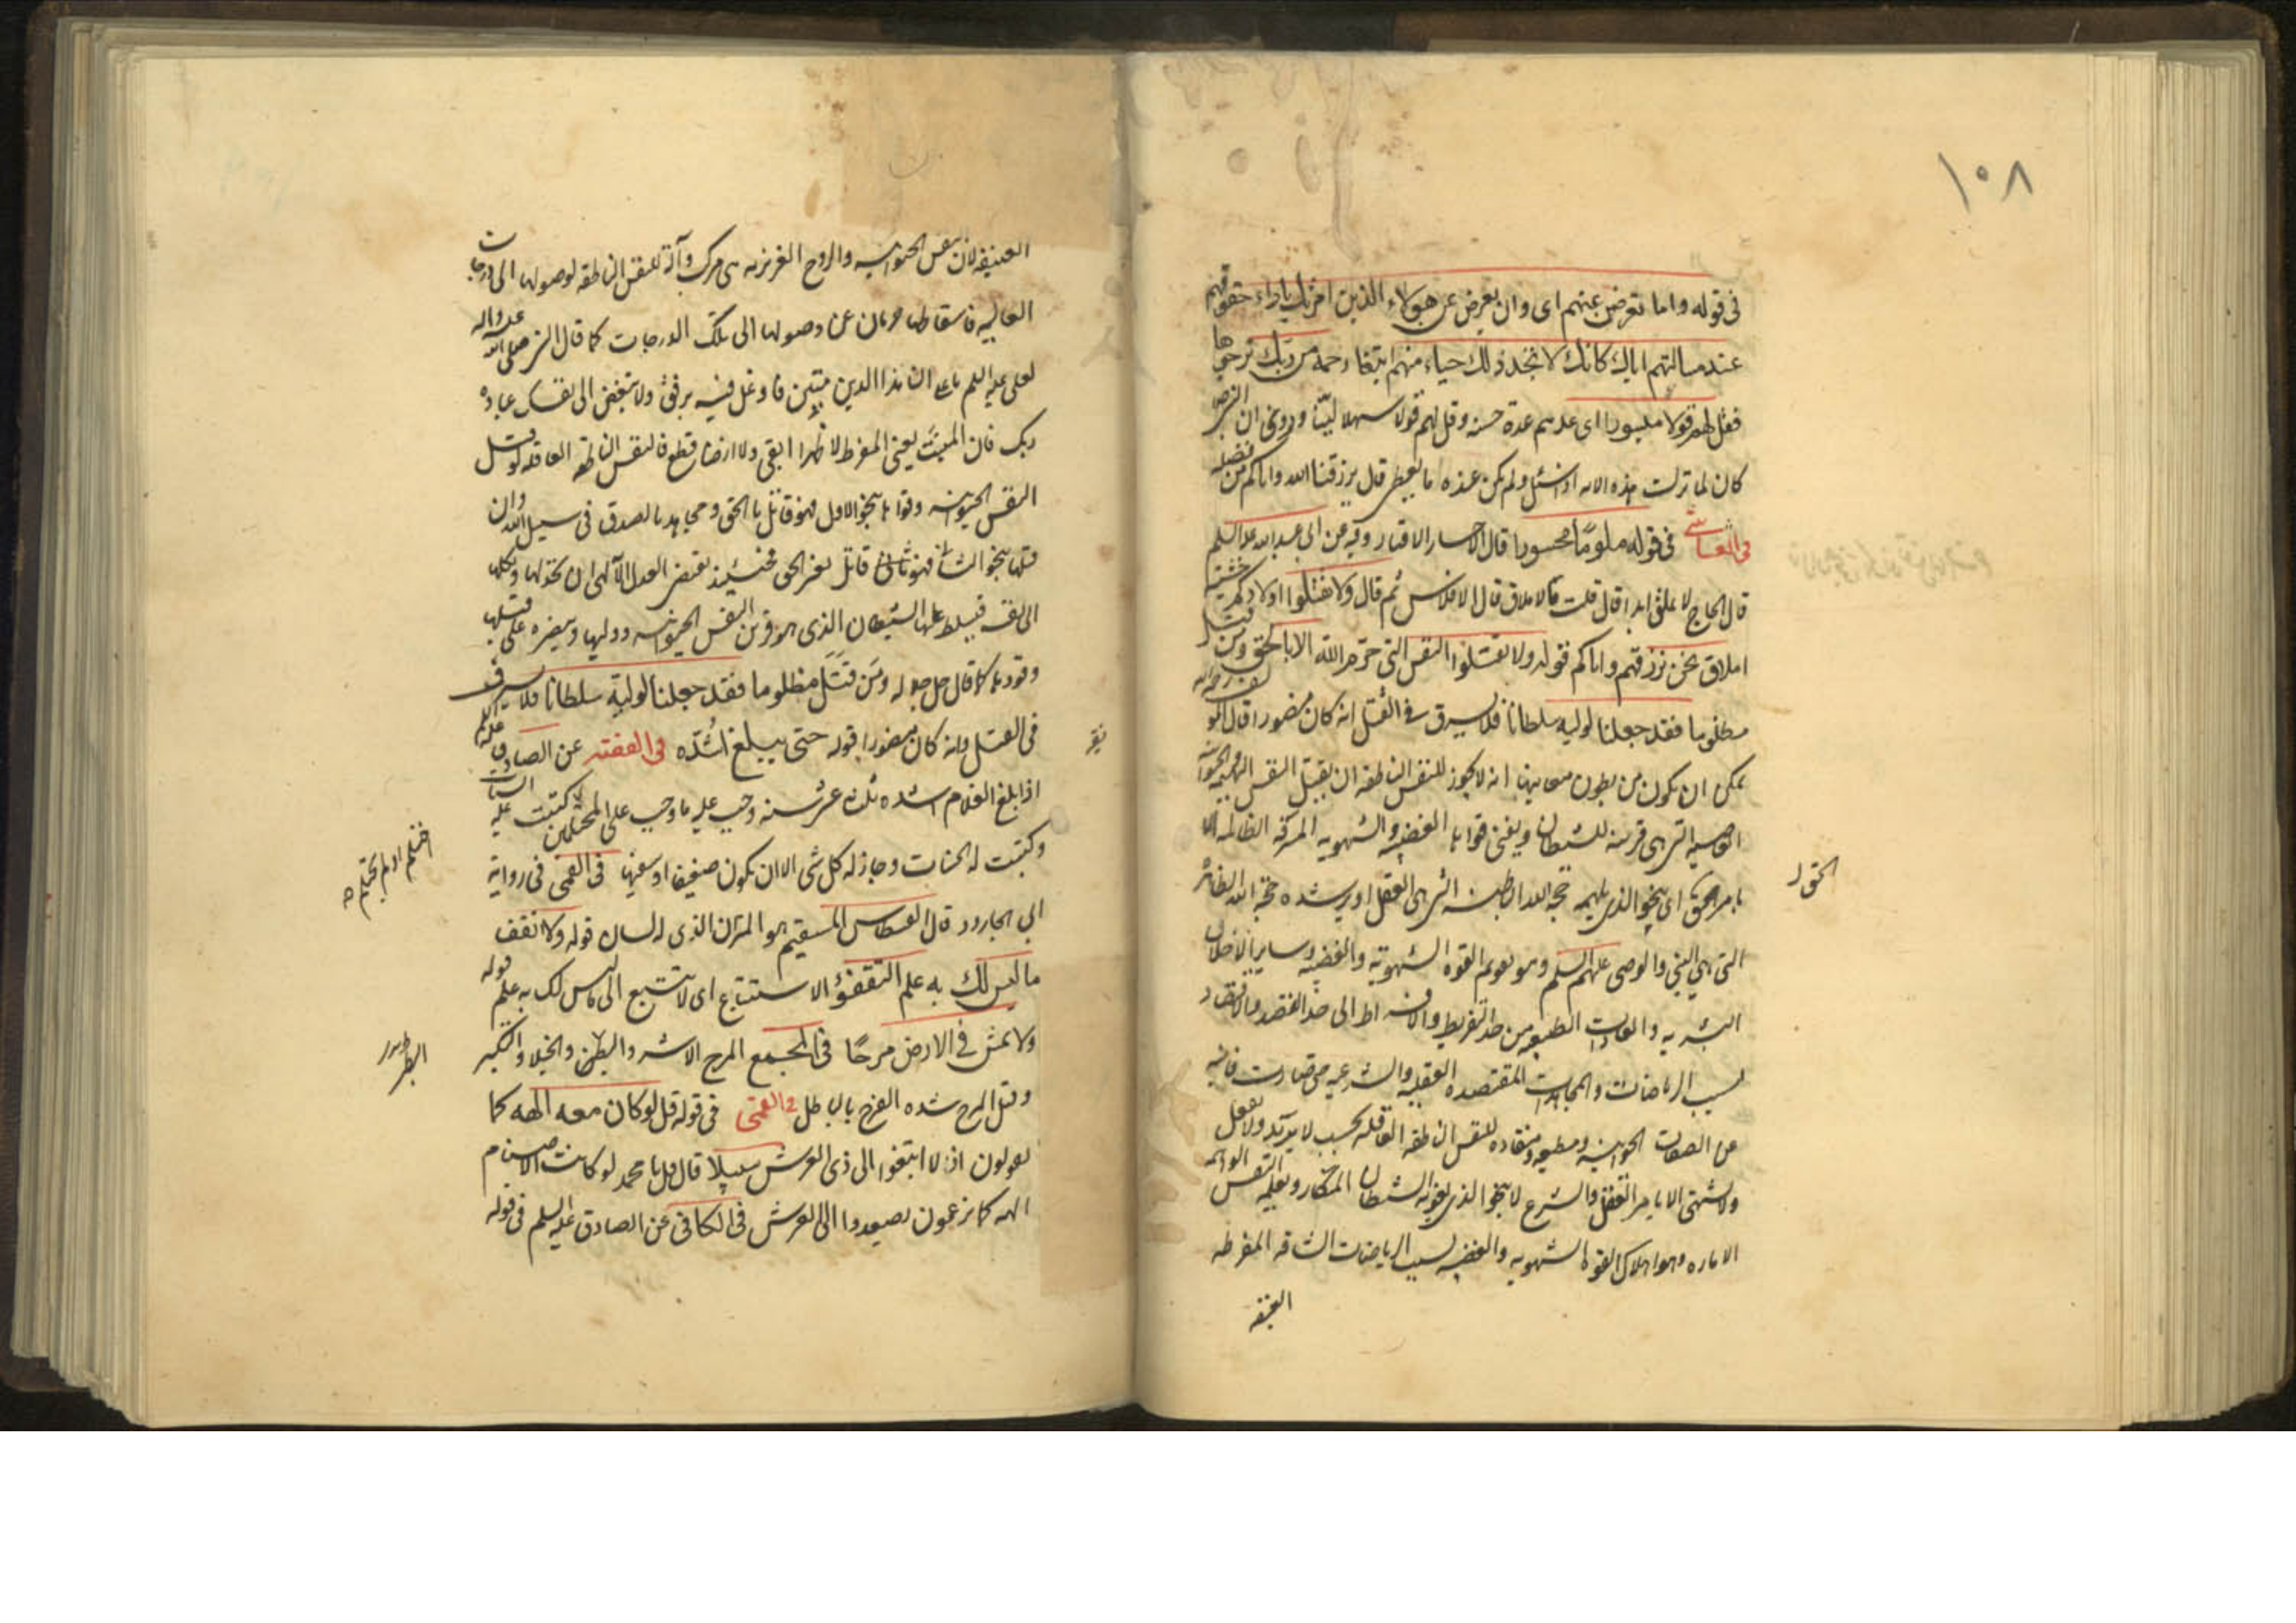 ١٠٨
فى قوله واما تعرضن عنهم اى وان تعرض عن هؤلاء الذين امرتك باداء حقوقهم
عند مسالتهم اياك لانك لا تجد ذلك حياء منهم ابتغاء رحمة من ربك ترجوها
فقل لهم قولا ميسورا اى عدهم عدة حسنة وقل لهم قولا سهلا لينا وروى ان النبى ص
كان لما نزلت هذه الايه اذا سئل ولم يكن عنده ما يعطى قال يرزقنا الله واياكم من فضله
فى قوله ملوما محسورا قال الاحسار الاقتار وفيه عن ابى عبد الله عليه السلم
قال الحاج لا يملق ابدا قال قلت ما الاملاق قال الافلاس ثم قال ولا تقتلوا اولادكم خشية
املاق نحن نرزقهم واياكم قوله ولا تقتلوا النفس التى حرم الله الا بالحق ومن قتل
مظلوما فقد جعلنا لوليه سلطانا فلا يسرف فى القتل انه كان منصورا
يمكن ان يكون من بطون معانيها انه لا يجوز للنفس الناطقه ان يقتل النفس
التى هى قرينة للشيطان ويفنى قواها الغضبيه والشهويه
بامر الحق اى بنحو الذى يلهمه حجة الله الباطنه التى هى العقل او يرشده حجة الله الظاهرة
الحق ل
التى هى النبى والوصى عليهم السلم وهو تقويم القوة الشهوية والغضبيه وساير الاخلاق
من حد التفريط والافراط الى حد القصد والاقتصاد
بسبب الرياضات والمجاهدات المقتصده العقليه والشرعيه حتى صارت فانيه
عن الصفات الحيوانيه ومطيعه ومنقاده للنفس الناطقه العاقله بحيث لا يريد ولا يفعل
ولا يشتهى الا بامر العقل والشرع لا بنحو الذى يغويه الشيطان المكار ويعلمه النفس الواهمه
الاماره وهو اهلاك القوة الشهويه والغضبيه بسبب الرياضات الشاقه المفرطه
العنيفه
العنيفه لان نفس الحيوانيه والروح الغريزيه هى مركب وآلة للنفس الناطقه لوصولها الى درجات
العاليه فاسقاطها حرمان عن وصولها الى تلك الدرجات كما قال النبى صلى الله عليه واله
لعلى عليه السلم يا على ان هذا الدين متين فاوغل فيه برفق ولا تبغض الى نفسك عبادة
ربك فان المنبت يعنى المفرط لا ظهرا ابقى ولا ارضا قطع فالنفس الناطقه العاقله لو قتل
النفس الحيوانيه وقواها بنحو الاول فهو قاتل بالحق ومجاهد بالصدق فى سبيل الله وان
قتلها بنحو الثانى فهو قاتل بغير الحق فحينئذ يقتضى العدل الآلهى ان
الى نفسه فيسلط عليها الشيطان الذى هو قرين النفس الحيوانيه ووليها وينصره على قتلها
وقودها كما قال جل جلاله ومن قتل مظلوما فقد جعلنا لوليه سلطانا فلا يسرف
فى القتل انه كان منصورا قوله حتى يبلغ اشده فى الفقيه عن الصادق عليه السلم
اذا بلغ الغلام اشده ثلث عشر سنه وجب عليه ما وجب على المحتلمين كتبت عليه السيئات
احتلم ام لم يحتلم
وكتبت له الحسنات وجاز له كل شى الا ان يكون ضعيفا او سفيها فى القمى فى رواية
ابى الجارود قال القسطاس المستقيم هو الميزان الذى له لسان قوله ولا تقف
ما ليس لك به علم التقفؤ الاستتباع اى لا تتبع الى ما ليس لك به علم قوله
ولا تمش فى الارض مرحا فى المجمع المرح الاشر والبطر والخيلا والتكبر
البطر
وقيل المرح شده الفرح بالباطل فى القمى فى قوله قل لو كان معه الهه كما
يقولون اذا لابتغوا الى ذى العرش سبيلا قال قل يا محمد لو كانت الاصنام
الهه كما تزعمون لصعدوا الى العرش فى الكافى عن الصادق عليه السلم فى قوله